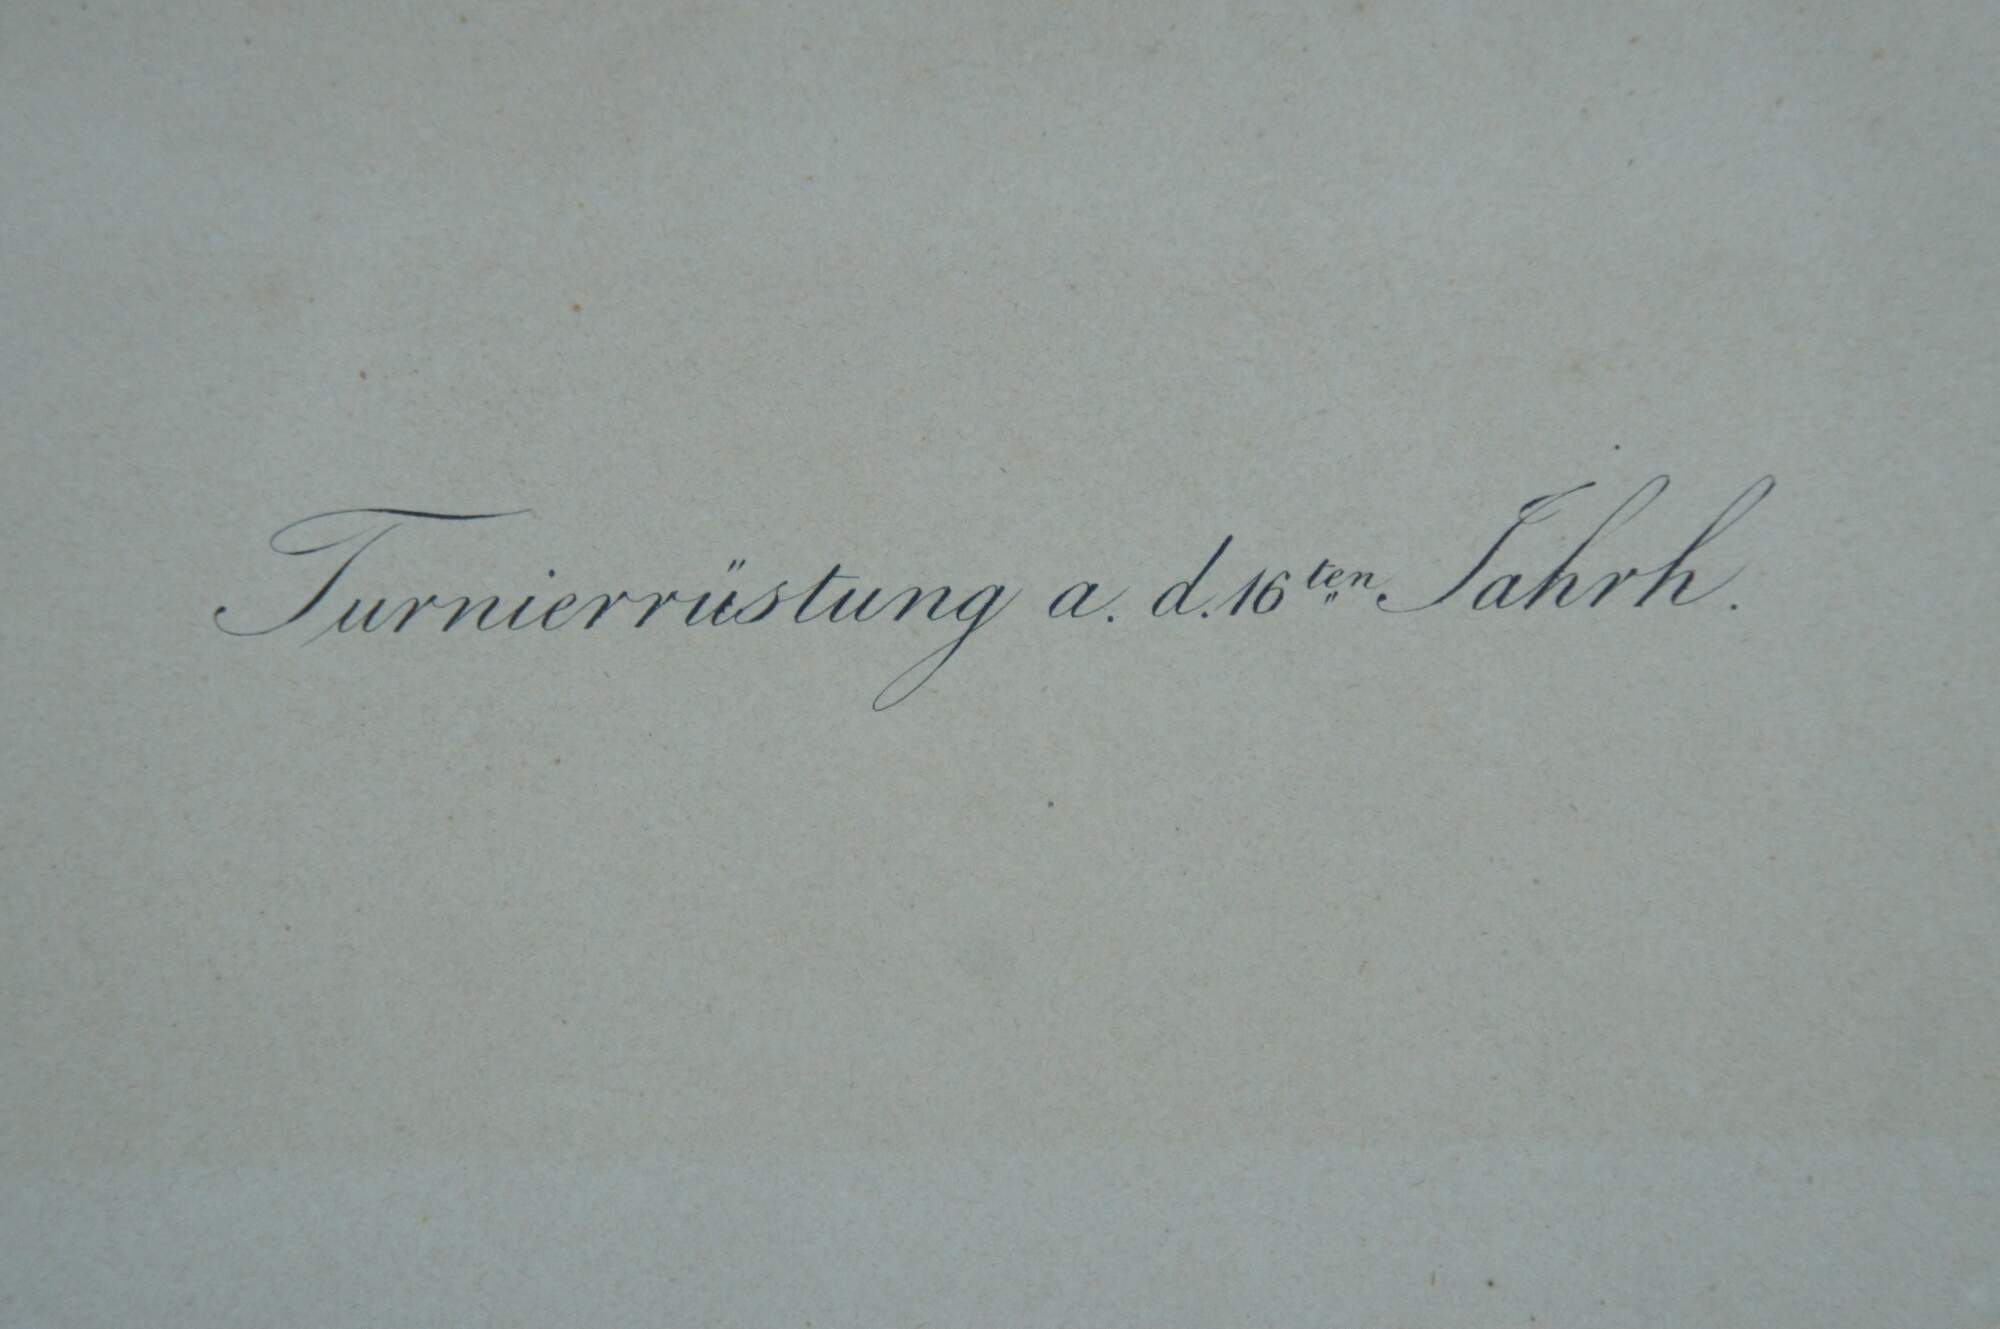 Turnierrüstung a. d. 16ten Jahrh.